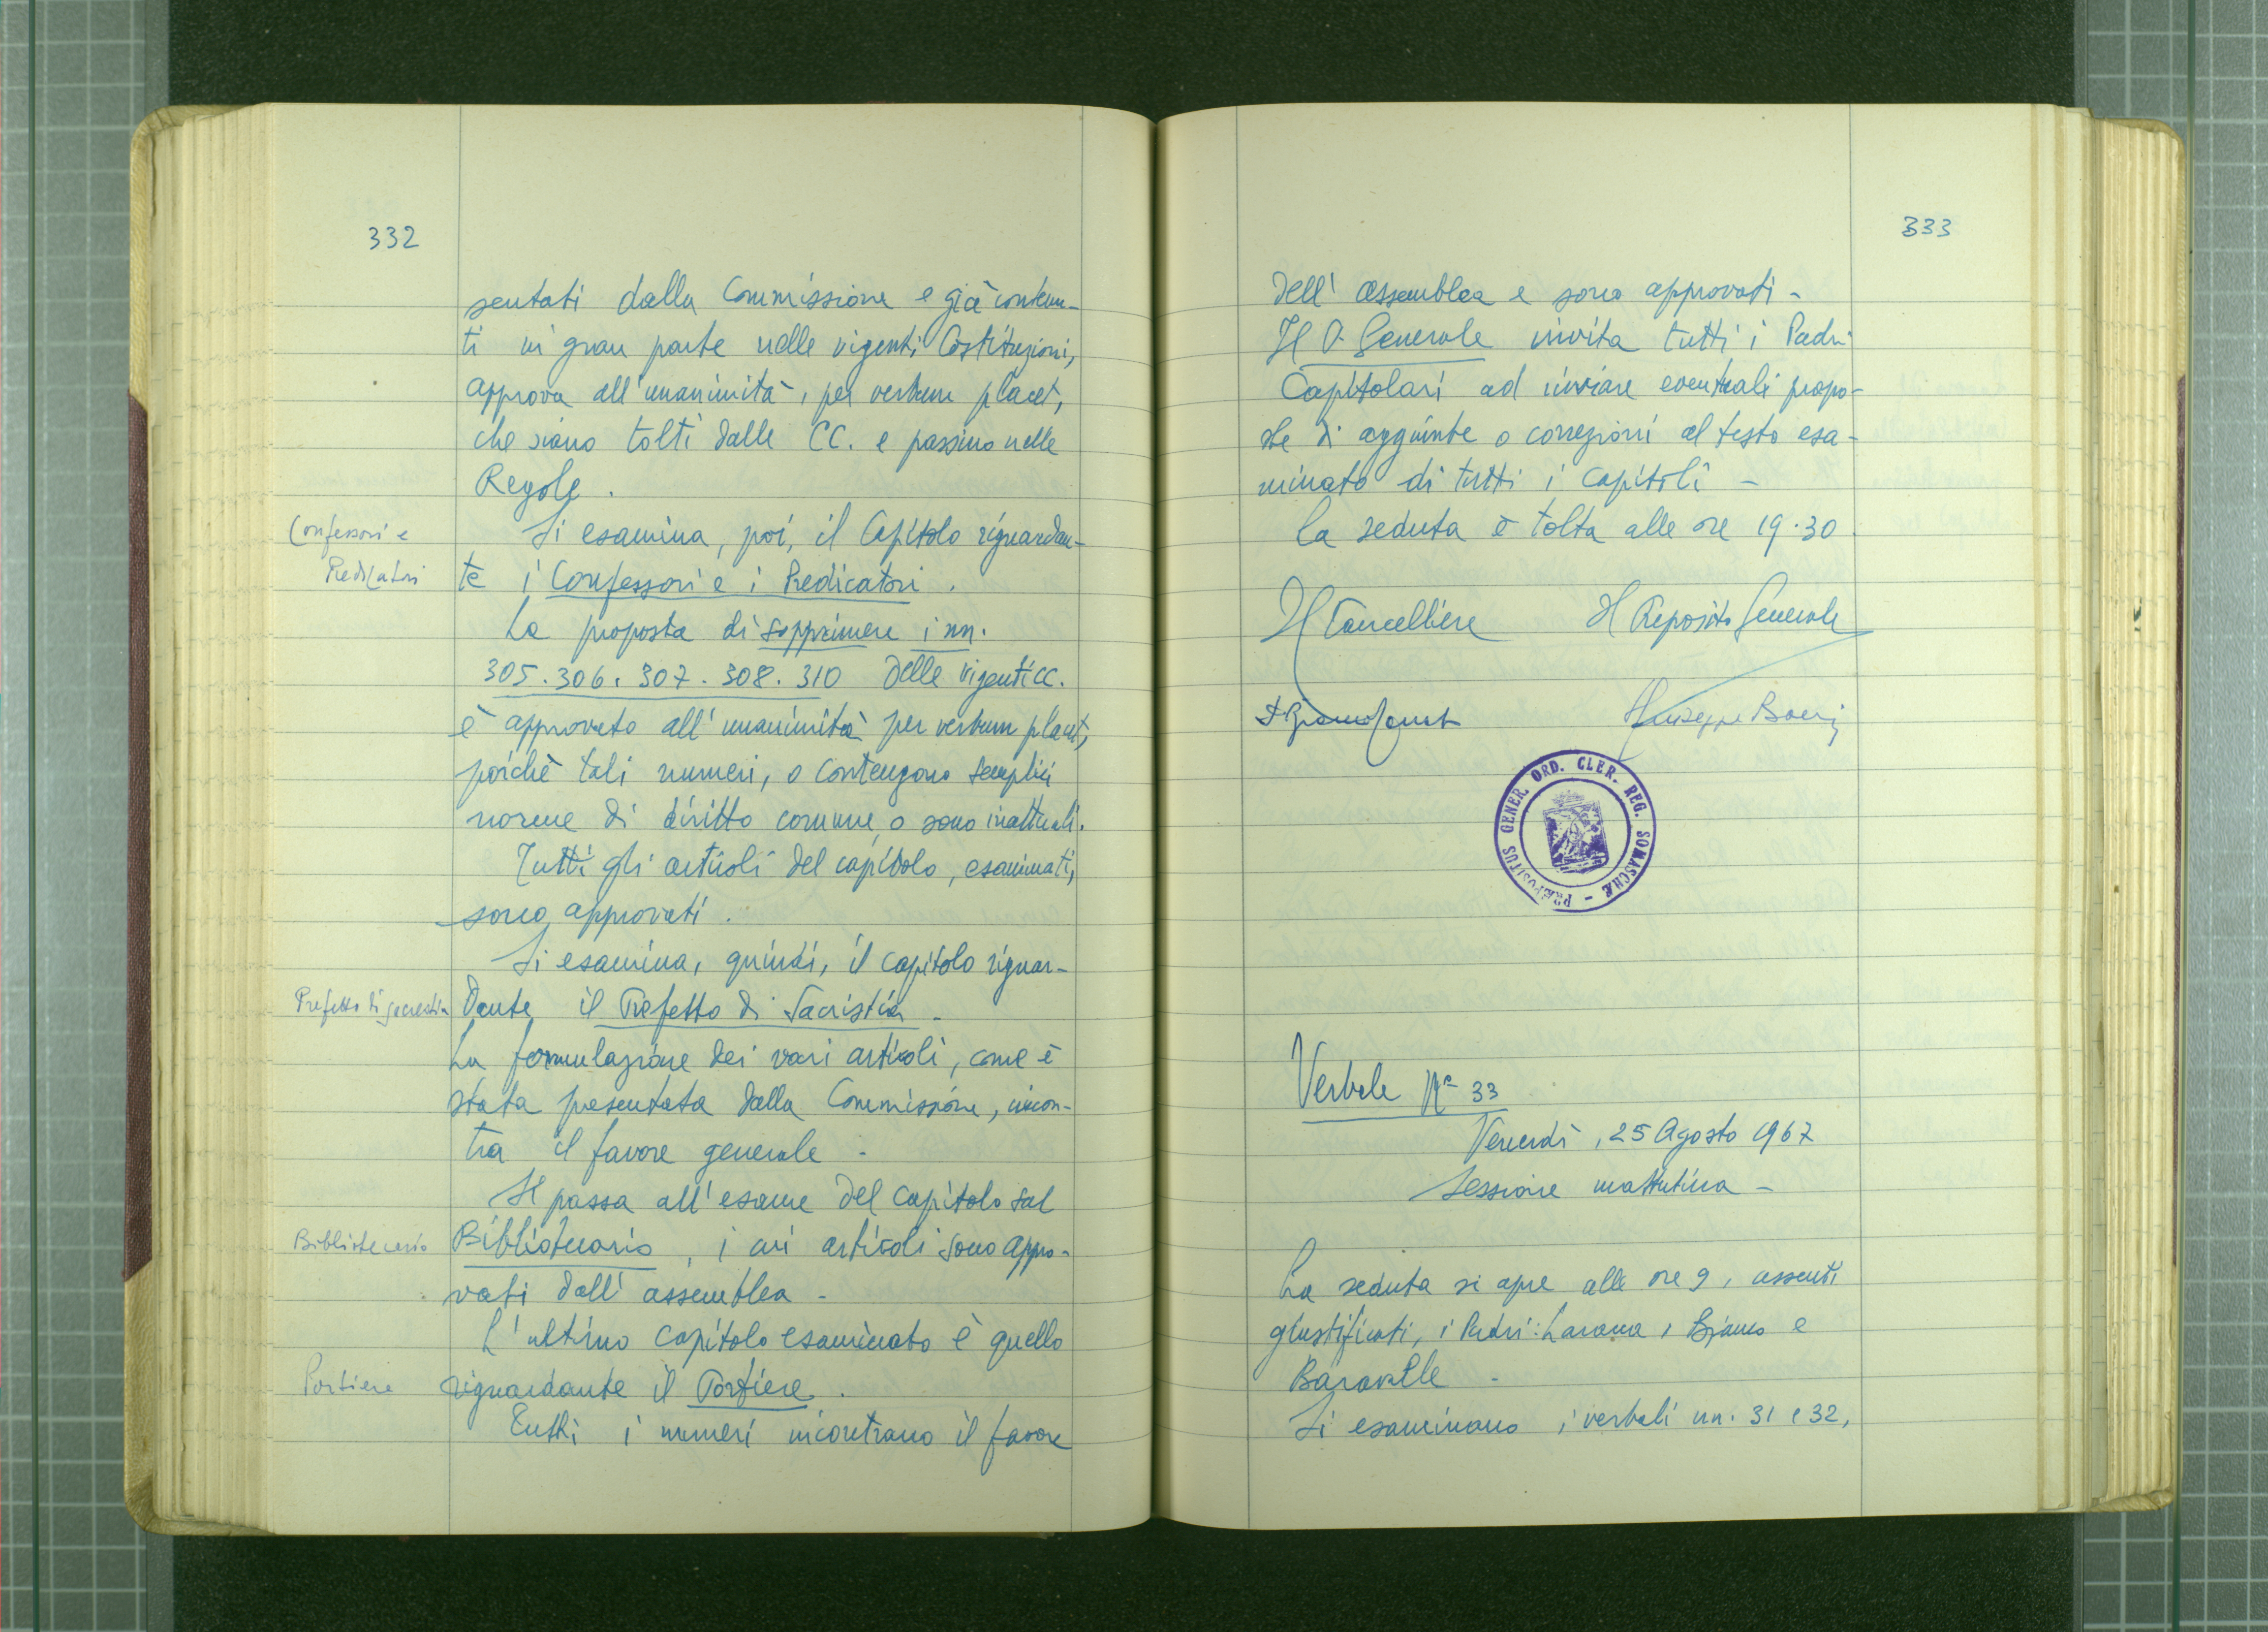 332
sentati dalla Commissione e già contenu-
ti in gran parte nelle vigenti Costituzioni,
approva all'unanimità, per verbum placet,
che siano tolti dalle CC. e passino nelle
Regole.
Confessori e
Predicatori
Si esamina, poi, il Capitolo riguardan-
te i Confessori e i Predicatori.
La proposta di sopprimere i nn.
305. 306. 307. 308. 310 delle vigenti CC.
è approvata all'unanimità per verbum placet,
poichè tali numeri, o contengono semplici
norme di diritto comune, o sono inattuali.
Tutti gli articoli del capitolo, esaminati,
sono approvati.
Si esamina, quindi, il capitolo riguar-
Prefetto di sacrestia
dante il Prefetto di Sacristia -
La formulazione dei vari articoli, come è
stata presentata dalla Commissione, incon-
tra il favore generale -
Si passa all'esame del capitolo sul
Bibliotecario
Bibliotecario, i cui articoli sono appro-
vati dall'assemblea -
L'ultimo capitolo esaminato è quello
Portiere
riguardante il Portiere.
Tutti i numeri incontrano il favore
333
dell'assemblea e sono approvati -
Il P. Generale invita tutti i Padri
Capitolari ad inviare eventuali propo-
ste di aggiunte o correzioni al testo esa-
minato di tutti i capitoli -
La seduta è tolta alle ore 19.30.
Il Cancelliere Il Preposito Generale
Giuseppe Boeri
PRÆPOSITUS GENER. ORD. CLER. REG. SOMASCHÆ -
Verbale Nº 33
Venerdì, 25 Agosto 1967
Sessione mattutina -
La seduta si apre alle ore 9, assenti
giustificati, i Padri: Larana, Bianco e
Baravalle -
Si esaminano i verbali nn. 31 e 32,